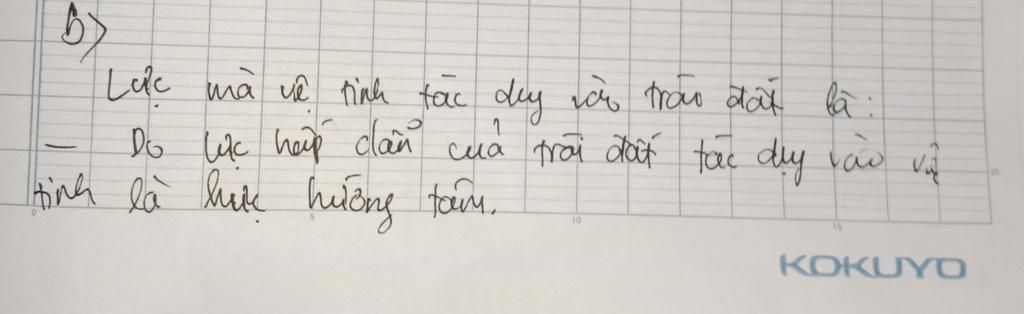 b)
Lực mà vệ tinh tác dụy vào tráo đất là:
— Do lực hấp dẫn của trái đất tác dụy vào vệ
tinh là lực hướng tâm.
0 5 10 15 25
KOKUYO